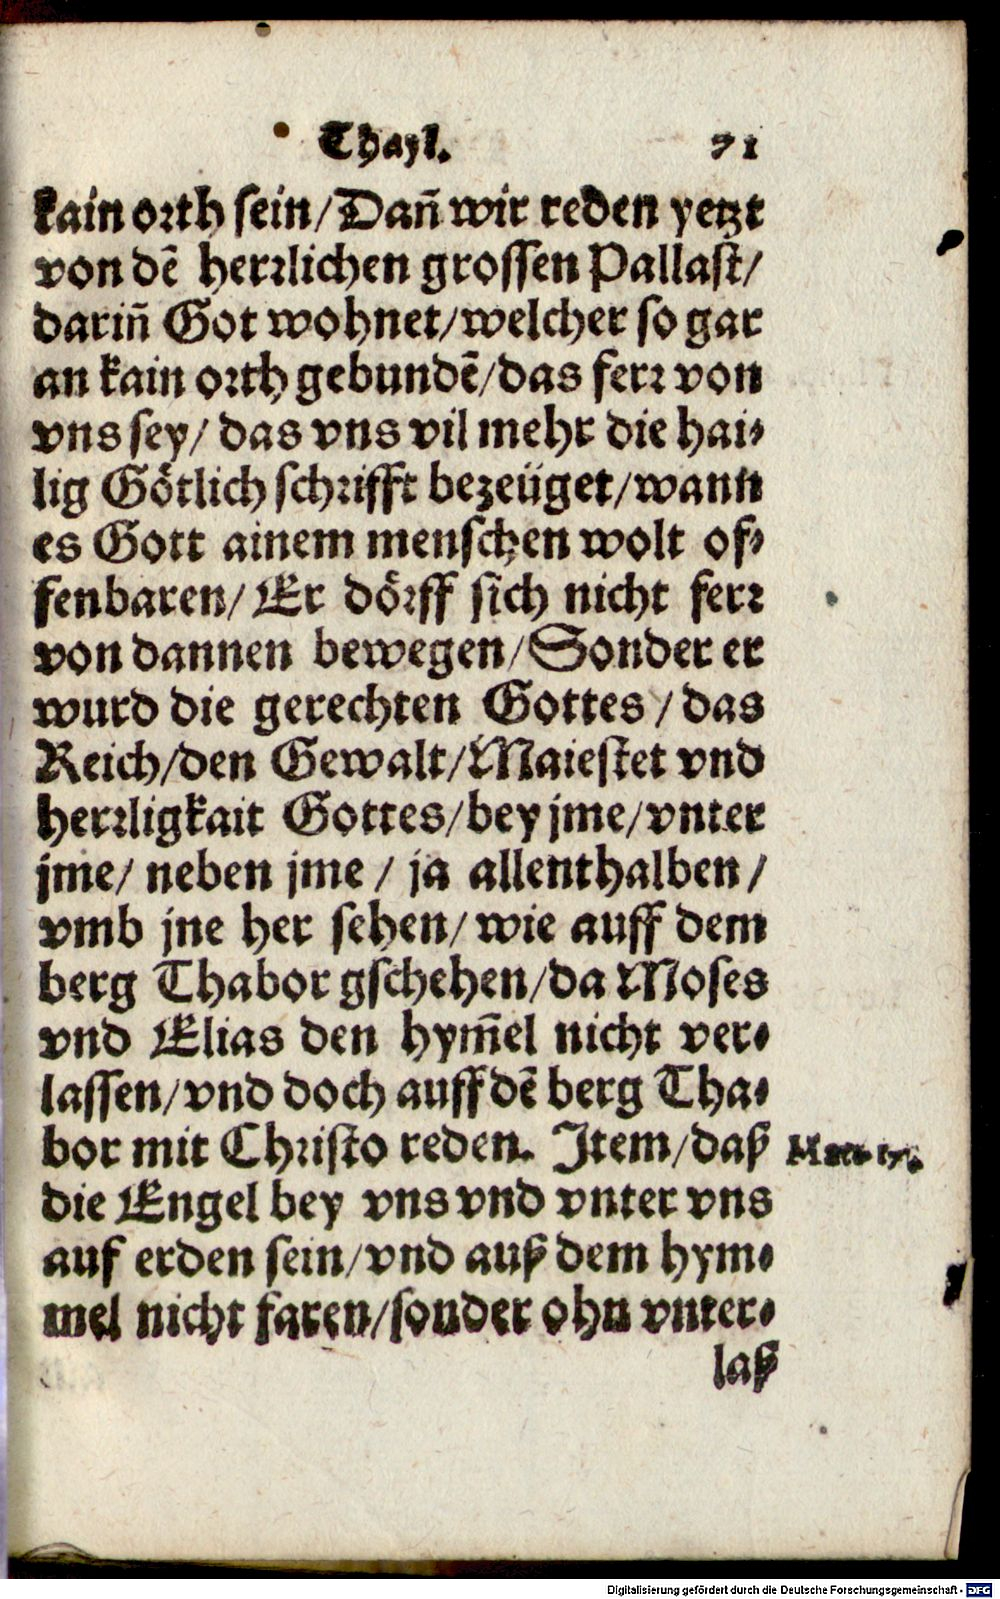 Thayl. 71
kain orth sein/Dañ wir reden yetzt
von dẽ herrlichen grossen Pallast/
dariñ Got wohnet/welcher so gar
an kain orth gebundẽ/das ferr von
vns sey/ das vns vil mehr die hai-
lig Götlich schrifft bezeüget/wann
es Gott ainem menschen wolt of-
fenbaren/ Er dörff sich nicht ferr
von dannen bewegen/Sonder er
wurd die gerechten Gottes/das
Reich/den Gewalt/Maiestet vnd
herrligkait Gottes/bey jme/vnter
jme/ neben jme/ ja allenthalben/
vmb jne her sehen/wie auff dem
berg Thabor gschehen/da Moses
vnd Elias den hym̃el nicht ver-
lassen/vnd doch auff dẽ berg Tha-
bor mit Christo reden. Item/daß
die Engel bey vns vnd vnter vns
auf erden sein/vnd auß dem hym-
mel nicht faren/sonder ohn vnter-
laß
Digitalisierung gefördert durch die Deutsche Forschungsgemeinschaft - DFG